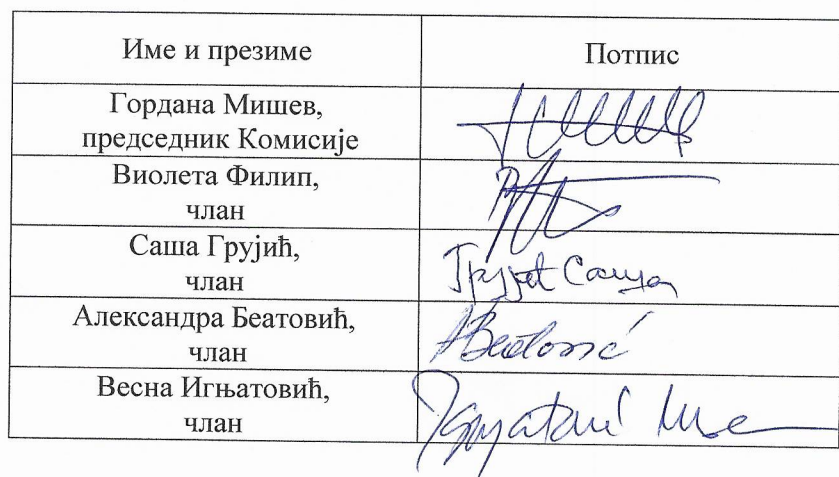 Име и презиме
Потпис
Гордана Мишев,
председник Комисије
Виолета Филип,
члан
Саша Грујић,
члан
Грујић Саша
Александра Беатовић,
члан
ABeatović
Весна Игњатовић,
члан
Игњатовић